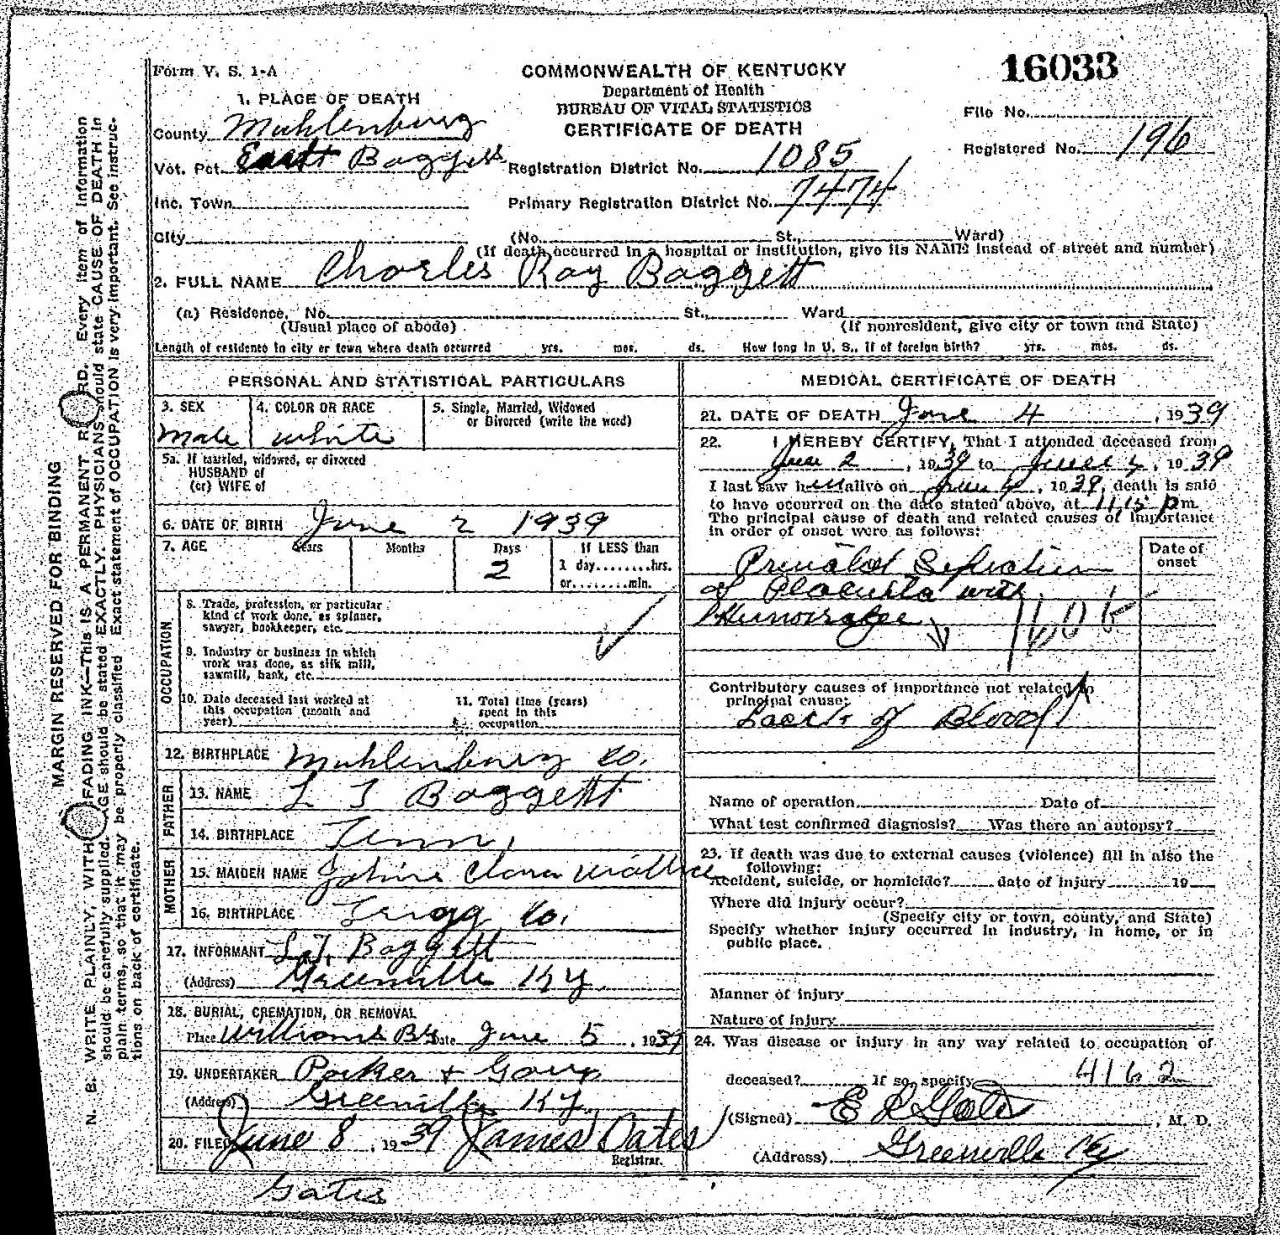 Form V. S. 1-A
COMMONWEALTH OF KENTUCKY
Department of Health
BUREAU OF VITAL STATISTICS
CERTIFICATE OF DEATH
16033
File No.
Registered No. 196
1. PLACE OF DEATH
County Muhlenburg
Vot. Pct. East Baggett
Registration District No. 1085
Inc. Town
Primary Registration District No. 7474
City (No. St., Ward)
(If death occurred in a hospital or institution, give its NAME instead of street and number)
2. FULL NAME Charles Ray Baggett
(a) Residence, No. St., Ward
(Usual place of abode) (If nonresident, give city or town and State)
Length of residence in city or town where death occurred yrs. mos. ds. How long in U. S., if of foreign birth? yrs. mos. ds.
PERSONAL AND STATISTICAL PARTICULARS
3. SEX
Male
4. COLOR OR RACE
White
5. Single, Married, Widowed
or Divorced (write the word)
5a. If married, widowed, or divorced
HUSBAND of
(or) WIFE of
6. DATE OF BIRTH June 2 1939
7. AGE Years Months Days If LESS than
2 1 day........hrs.
or........min.
OCCUPATION
8. Trade, profession, or particular
kind of work done, as spinner,
sawyer, bookkeeper, etc.
9. Industry or business in which
work was done, as silk mill,
sawmill, bank, etc.
10. Date deceased last worked at
this occupation (month and
year)
11. Total time (years)
spent in this
occupation
12. BIRTHPLACE Muhlenburg Co.
FATHER
13. NAME L T Baggett
14. BIRTHPLACE Tenn.
MOTHER
15. MAIDEN NAME Clara Wallace
16. BIRTHPLACE Trigg Co.
17. INFORMANT L.T. Baggett
(Address) Greenville Ky
18. BURIAL, CREMATION, OR REMOVAL
Place Williams Date June 5, 1939
19. UNDERTAKER Parker +
(Address) Greenville Ky.
20. FILED June 8, 1939 James Oates
Registrar.
Gates
MEDICAL CERTIFICATE OF DEATH
21. DATE OF DEATH June 4, 1939
22. I HEREBY CERTIFY, That I attended deceased from
June 2, 1939 to June 4, 1939
I last saw him alive on June 4, 1939, death is said
to have occurred on the date stated above, at 11,15 pm.
The principal cause of death and related causes of importance
in order of onset were as follows:
Date of
onset
of Placenta with
Contributory causes of importance not related to
principal cause:
Lack of Blood
Name of operation Date of
What test confirmed diagnosis? Was there an autopsy?
23. If death was due to external causes (violence) fill in also the
following:
Accident, suicide, or homicide? date of injury 19
Where did injury occur?
(Specify city or town, county, and State)
Specify whether injury occurred in industry, in home, or in
public place.
Manner of injury
Nature of injury
24. Was disease or injury in any way related to occupation of
deceased? If so, specify 4162
(Signed) M. D.
(Address) Greenville Ky
MARGIN RESERVED FOR BINDING
N. B. WRITE PLAINLY, WITH FADING INK—THIS IS A PERMANENT RECORD. Every item of information
should be carefully supplied. AGE should be stated EXACTLY. PHYSICIANS should state CAUSE OF DEATH in
plain terms, so that it may be properly classified. Exact statement of OCCUPATION is very important. See instruc-
tions on back of certificate.